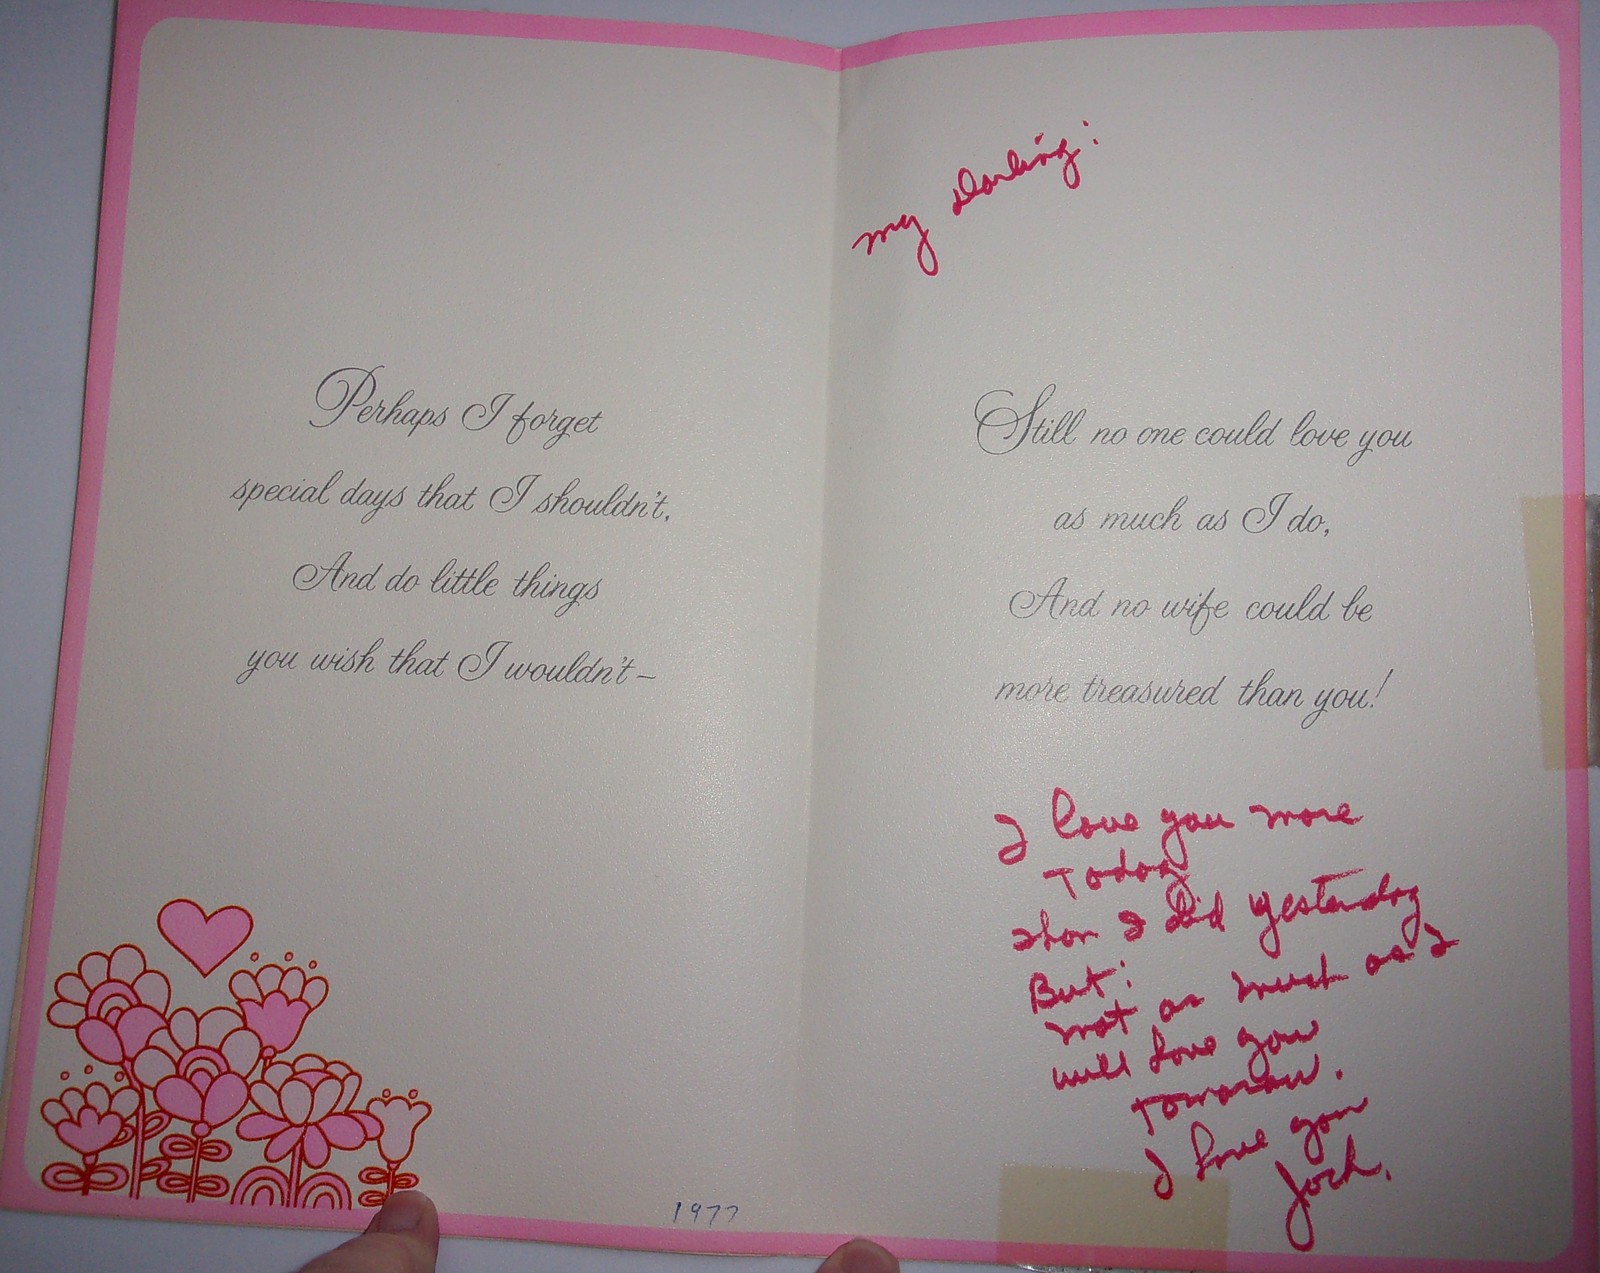 Perhaps I forget
special days that I shouldn't,
And do little things
you wish that I wouldn't—
1977
my Darling:
Still no one could love you
as much as I do,
And no wife could be
more treasured than you!
I love you more
Today
than I Did yesterday
But:
not as much as I
will love you
Tomorrow.
I love you